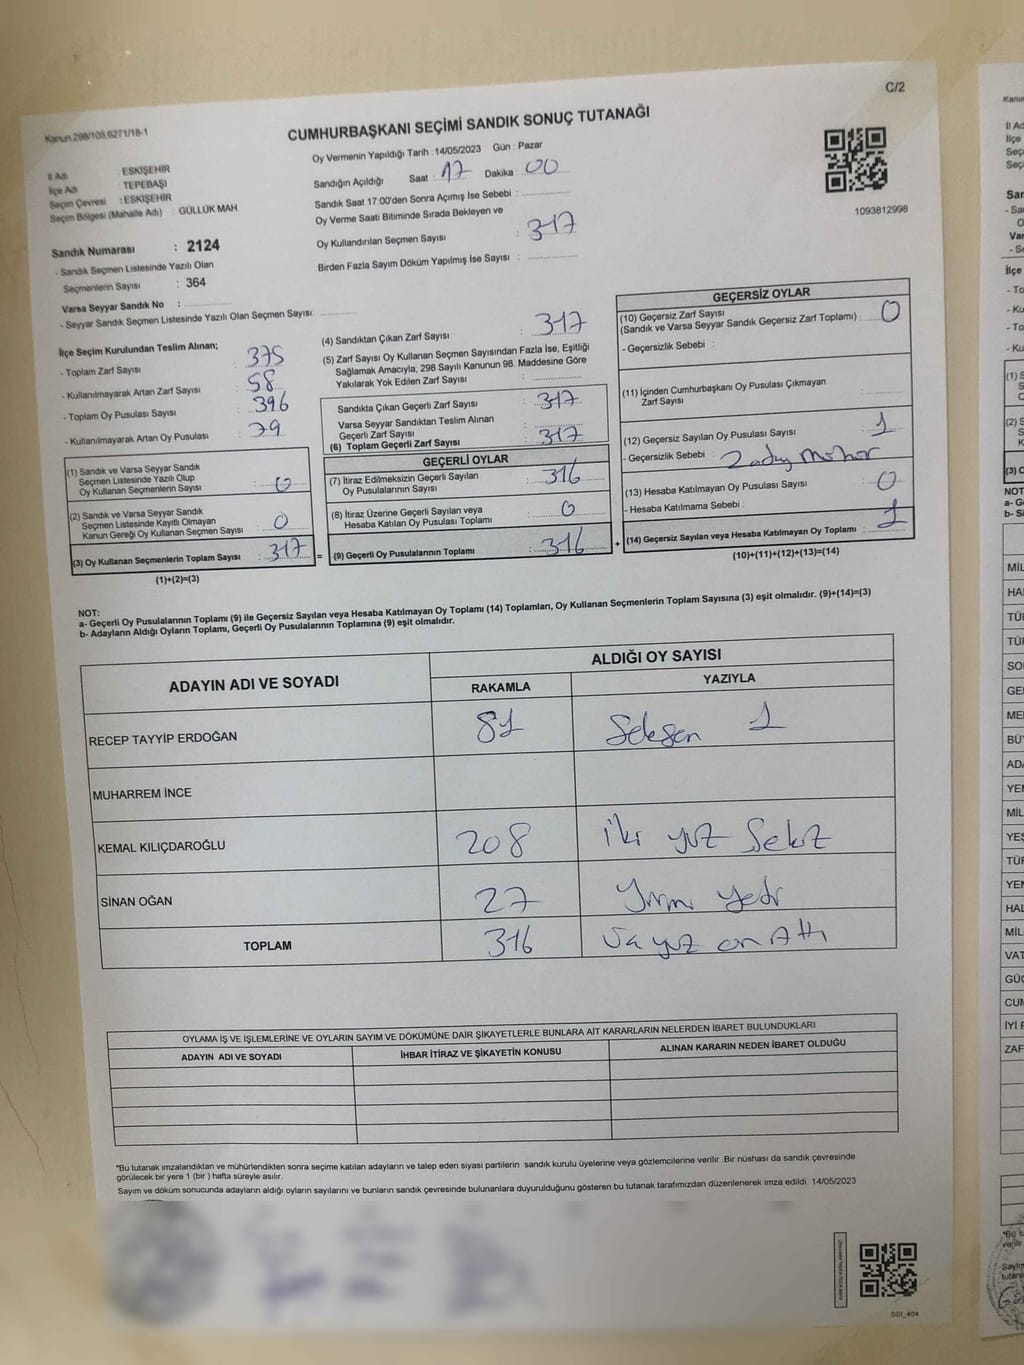 C/2
Kanun.298/105.6271/18-1
CUMHURBAŞKANI SEÇİMİ SANDIK SONUÇ TUTANAĞI
İl Adı ESKİŞEHİR
İlçe Adı TEPEBAŞI
Seçim Çevresi : ESKİŞEHİR
Seçim Bölgesi (Mahalle Adı) : GÜLLÜK MAH
Sandık Numarası : 2124
- Sandık Seçmen Listesinde Yazılı Olan
Seçmenlerin Sayısı : 364
Varsa Seyyar Sandık No :
- Seyyar Sandık Seçmen Listesinde Yazılı Olan Seçmen Sayısı:
Oy Vermenin Yapıldığı Tarih : 14/05/2023 Gün : Pazar
Sandığın Açıldığı Saat : 17 Dakika : 00
Sandık Saat 17:00'den Sonra Açımış İse Sebebi :
Oy Verme Saati Bitiminde Sırada Bekleyen ve
Oy Kullandırılan Seçmen Sayısı : 317
Birden Fazla Sayım Döküm Yapılmış İse Sayısı :
1093812998
İlçe Seçim Kurulundan Teslim Alınan;
- Toplam Zarf Sayısı : 375
- Kullanılmayarak Artan Zarf Sayısı : 58
- Toplam Oy Pusulası Sayısı : 396
- Kullanılmayarak Artan Oy Pusulası : 79
(1) Sandık ve Varsa Seyyar Sandık
Seçmen Listesinde Yazılı Olup
Oy Kullanan Seçmenlerin Sayısı : 0
(2) Sandık ve Varsa Seyyar Sandık
Seçmen Listesinde Kayıtlı Olmayan
Kanun Gereği Oy Kullanan Seçmen Sayısı : 0
(3) Oy Kullanan Seçmenlerin Toplam Sayısı : 317 =
(1)+(2)=(3)
(4) Sandıktan Çıkan Zarf Sayısı : 317
(5) Zarf Sayısı Oy Kullanan Seçmen Sayısından Fazla İse, Eşitliği
Sağlamak Amacıyla; 298 Sayılı Kanunun 98. Maddesine Göre
Yakılarak Yok Edilen Zarf Sayısı :
Sandıkta Çıkan Geçerli Zarf Sayısı : 317
Varsa Seyyar Sandıktan Teslim Alınan
Geçerli Zarf Sayısı
(6) Toplam Geçerli Zarf Sayısı : 317
GEÇERLİ OYLAR
(7) İtiraz Edilmeksizin Geçerli Sayılan
Oy Pusulalarının Sayısı : 316
(8) İtiraz Üzerine Geçerli Sayılan veya
Hesaba Katılan Oy Pusulası Toplamı : 0
(9) Geçerli Oy Pusulalarının Toplamı : 316 +
GEÇERSİZ OYLAR
(10) Geçersiz Zarf Sayısı
(Sandık ve Varsa Seyyar Sandık Geçersiz Zarf Toplamı) : 0
- Geçersizlik Sebebi :
(11) İçinden Cumhurbaşkanı Oy Pusulası Çıkmayan
Zarf Sayısı :
(12) Geçersiz Sayılan Oy Pusulası Sayısı : 1
- Geçersizlik Sebebi : 2 aday Mühür
(13) Hesaba Katılmayan Oy Pusulası Sayısı : 0
- Hesaba Katılmama Sebebi :
(14) Geçersiz Sayılan veya Hesaba Katılmayan Oy Toplamı : 1
(10)+(11)+(12)+(13)=(14)
NOT:
a- Geçerli Oy Pusulalarının Toplamı (9) ile Geçersiz Sayılan veya Hesaba Katılmayan Oy Toplamı (14) Toplamları, Oy Kullanan Seçmenlerin Toplam Sayısına (3) eşit olmalıdır. (9)+(14)=(3)
b- Adayların Aldığı Oyların Toplamı, Geçerli Oy Pusulalarının Toplamına (9) eşit olmalıdır.
ADAYIN ADI VE SOYADI
ALDIĞI OY SAYISI
RAKAMLA YAZIYLA
RECEP TAYYİP ERDOĞAN 81 Seksen 1
MUHARREM İNCE
KEMAL KILIÇDAROĞLU 208 iki yüz Sekiz
SİNAN OĞAN 27 Yirmi yedi
TOPLAM 316 Üç yüz on Altı
OYLAMA İŞ VE İŞLEMLERİNE VE OYLARIN SAYIM VE DÖKÜMÜNE DAİR ŞİKAYETLERLE BUNLARA AİT KARARLARIN NELERDEN İBARET BULUNDUKLARI
ADAYIN ADI VE SOYADI İHBAR İTİRAZ VE ŞİKAYETİN KONUSU ALINAN KARARIN NEDEN İBARET OLDUĞU
*Bu tutanak imzalandıktan ve mühürlendikten sonra seçime katılan adayların ve talep eden siyasi partilerin sandık kurulu üyelerine veya gözlemcilerine verilir .Bir nüshası da sandık çevresinde
görülecek bir yere 1 (bir ) hafta süreyle asılır.
Sayım ve döküm sonucunda adayların aldığı oyların sayılarını ve bunların sandık çevresinde bulunanlara duyurulduğunu gösteren bu tutanak tarafımızdan düzenlenerek imza edildi. 14/05/2023